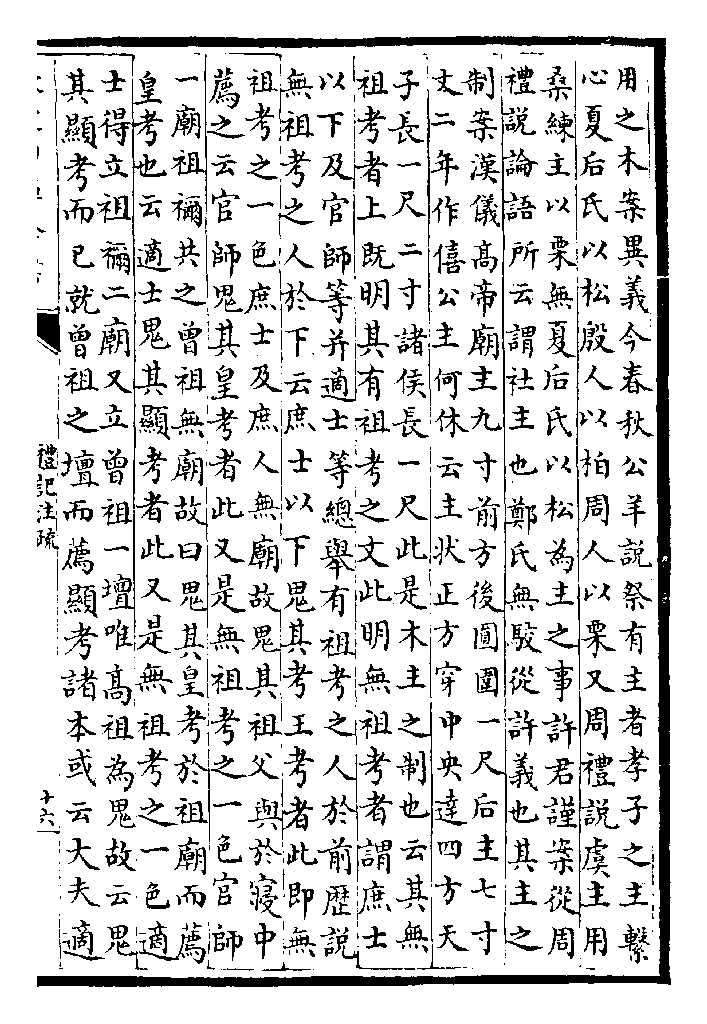 用之木案異義今春秋公羊説祭有主者孝子之主繫
心夏后氏以松殷人以柏周人以栗又周禮説虞主用
桑練主以栗無夏后氏以松為主之事許君謹案從周
禮説論語所云謂社主也鄭氏無駁從許義也其主之
制案漢儀髙帝廟主九寸前方後圓圍一尺后主七寸
文二年作僖公主何休云主状正方穿中央達四方天
子長一尺二寸諸侯長一尺此是木主之制也云其無
祖考者上既明其有祖考之文此明無祖考者謂庶士
以下及官師等并適士等總舉有祖考之人於前歴説
無祖考之人於下云庶士以下鬼其考王考者此即無
祖考之一色庶士及庶人無廟故鬼其祖父與於寢中
薦之云官師鬼其皇考者此又是無祖考之一色官師
一廟祖禰共之曽祖無廟故曰鬼其皇考於祖廟而薦
皇考也云適士鬼其顯考者此又是無祖考之一色適
士得立祖禰二廟又立曽祖一壇唯髙祖為鬼故云鬼
其顯考而已就曽祖之壇而薦顯考諸本或云大夫適
禮記注疏
十六